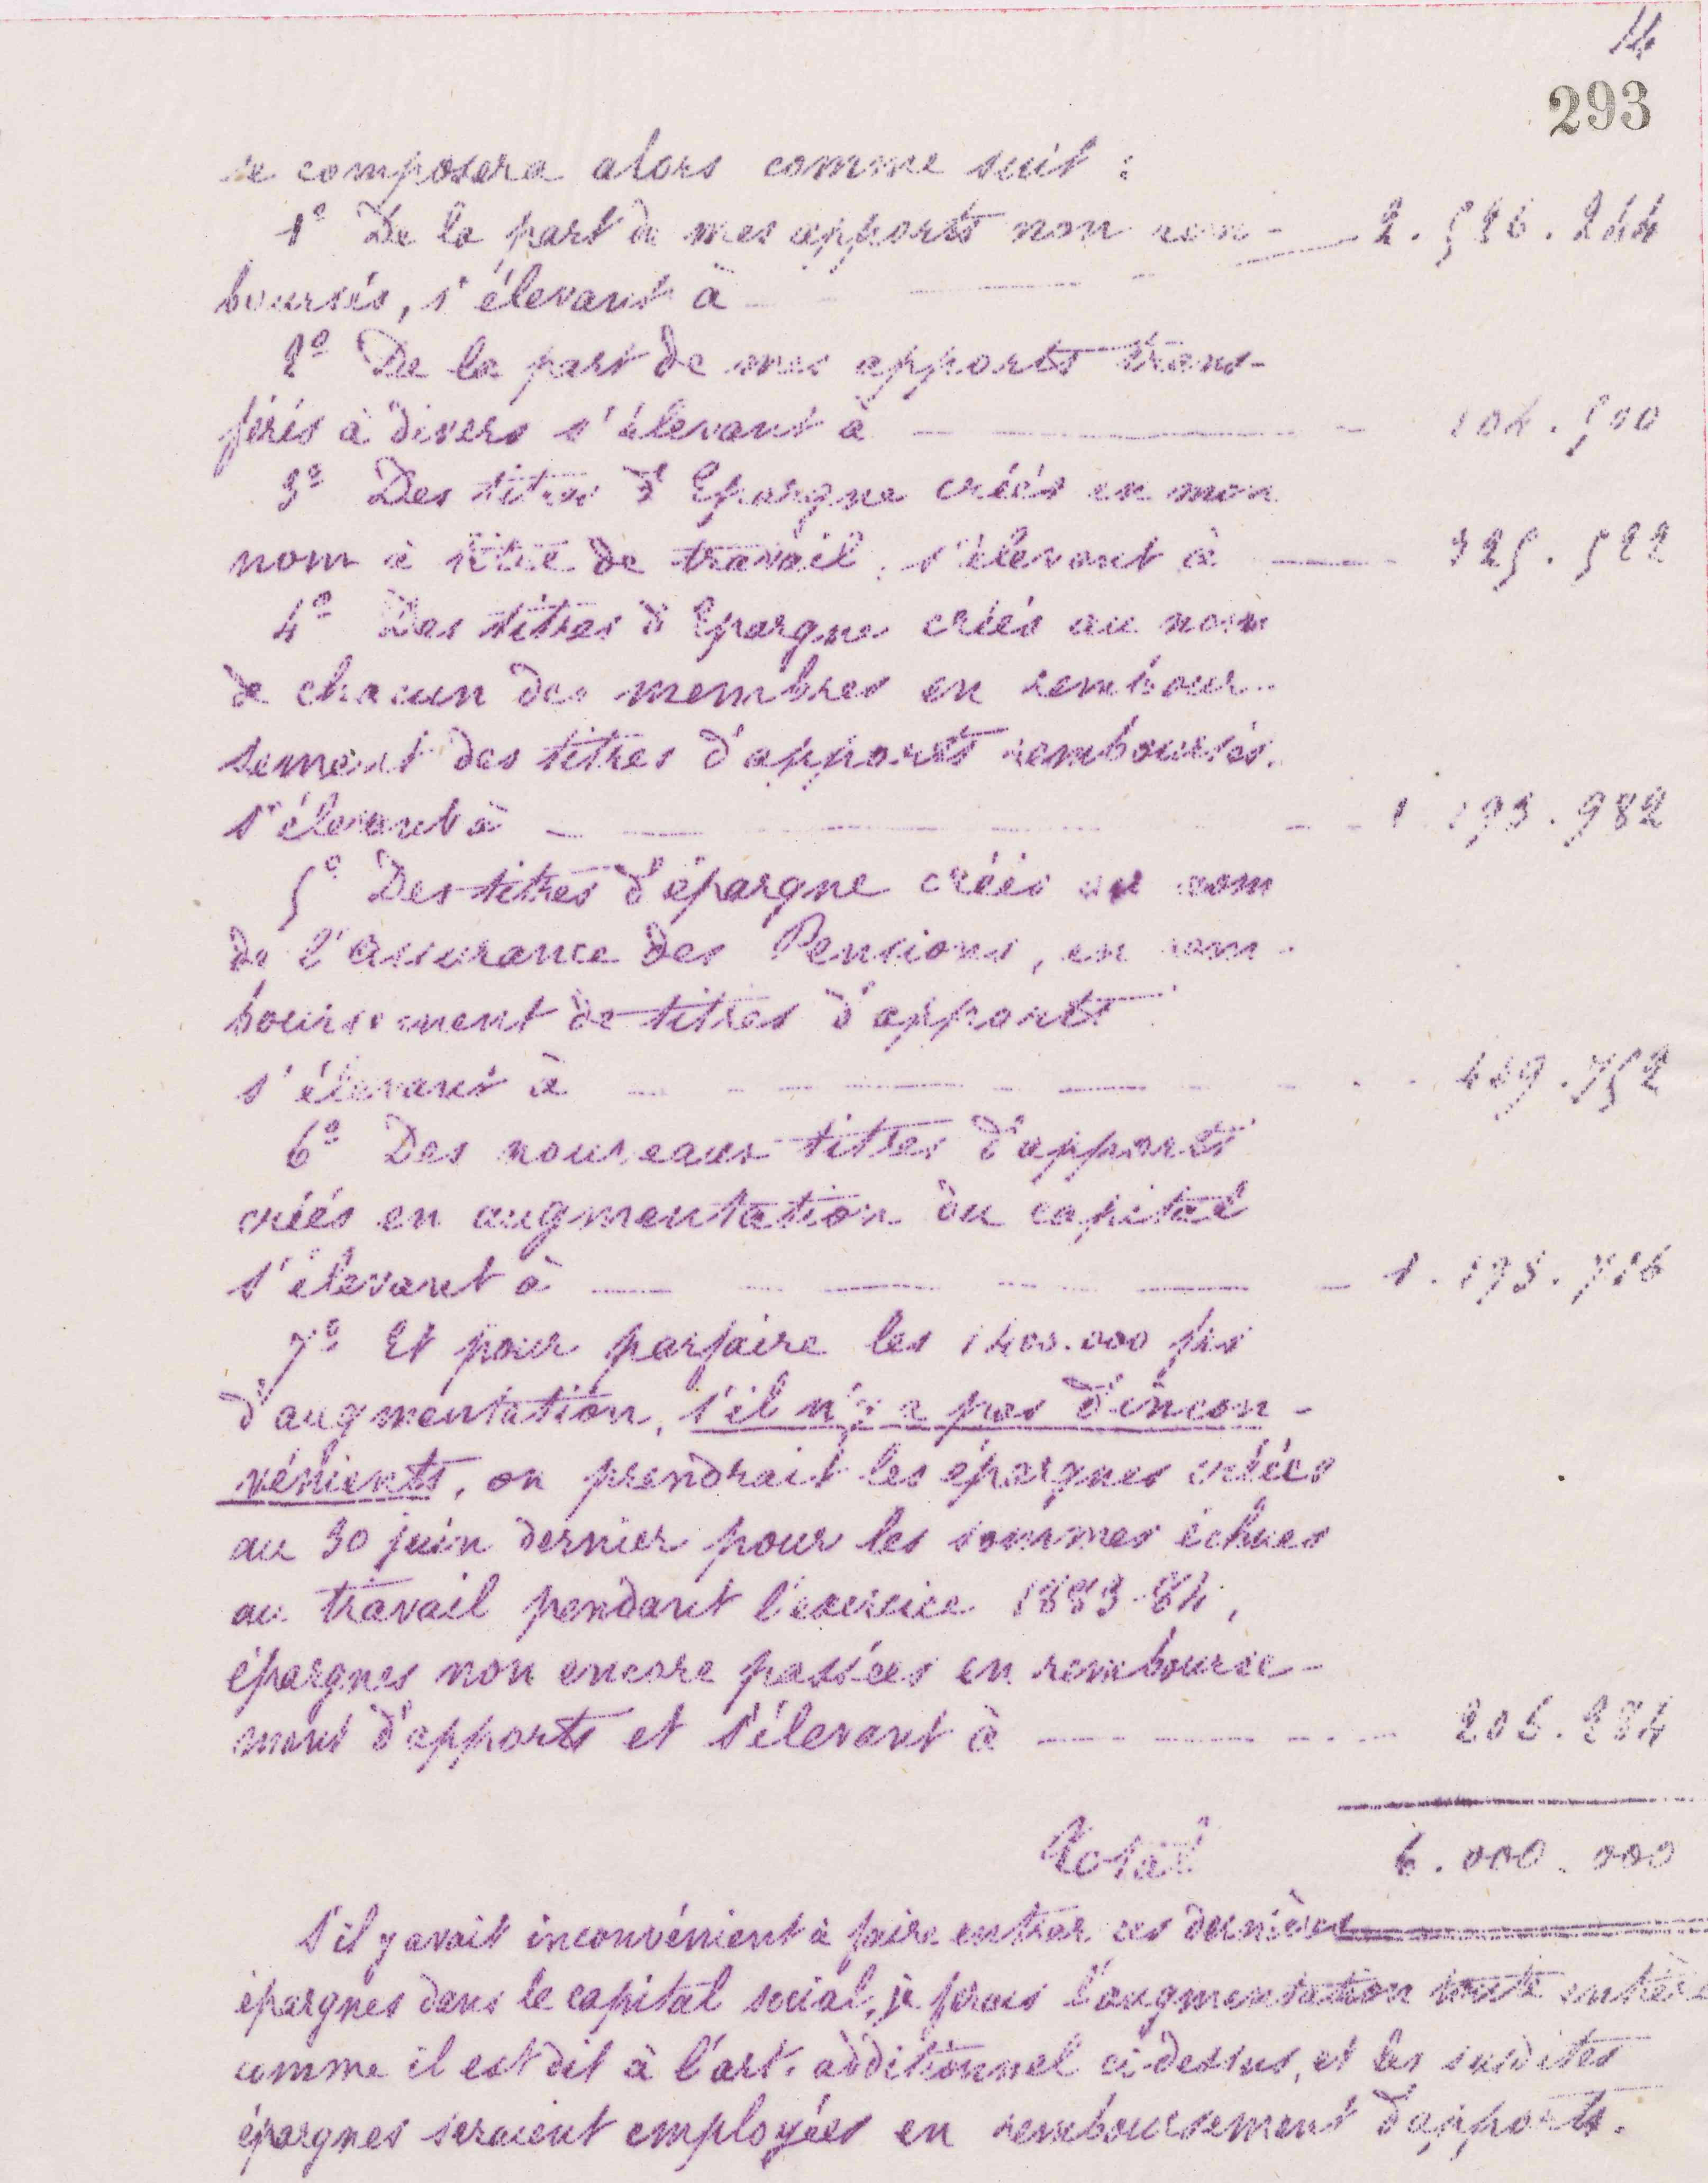 14
293
se composera alors comme suit :
1º De la part de mes apports non rem- 2.526.244
boursés, s'élevant à
2º De la part de mes apports trans-
férés à divers s'élevant à 104.500
3º Des titres d'Epargne créés en mon
nom à titre de travail, s'élevant à 325.522
4º Des titres d'Epargne créés au nom
de chacun des membres en rembour-
sement des titres d'apports remboursés,
s'élevant à 1.193.982
5º Des titres d'épargne créés au nom
de l'Assurance des Pensions, en rem-
boursement de titres d'apports
s'élevant à 449.752
6º Des nouveaux titres d'apports
créés en augmentation du capital
s'élevant à 1.193.716
7º Et pour parfaire les 1400.000 frs
d'augmentation, s'il n'y a pas d'incon-
vénients, on prendrait les épargnes créées
au 30 juin dernier pour les sommes échues
au travail pendant l'exercice 1883-84,
épargnes non encore passées en rembourse-
ment d'apports et s'élevant à 206.284
Total 6.000.000
S'il y avait inconvénient à faire entrer ces dernières
épargnes dans le capital social, je ferais l'augmentation toute entière
comme il est dit à l'art. additionnel ci-dessus, et les susdites
épargnes seraient employées en remboursement d'apports.